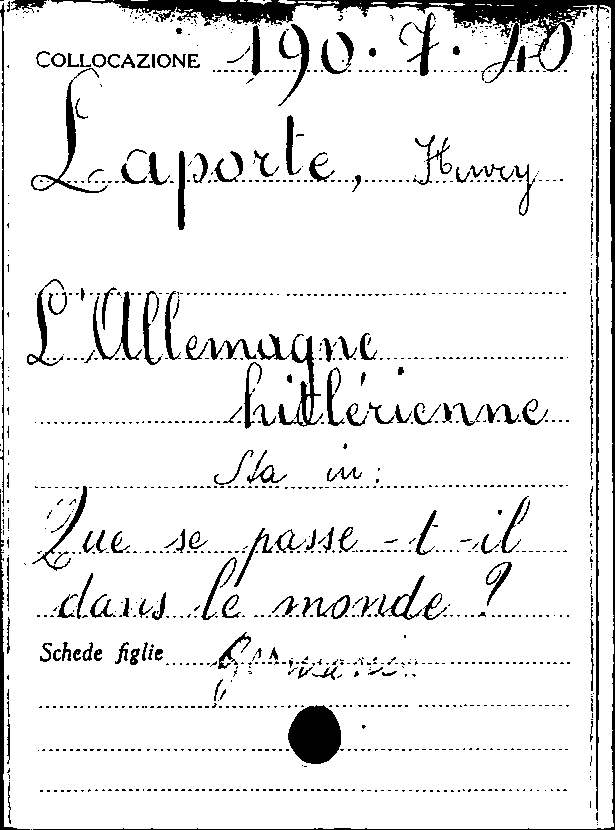 COLLOCAZIONE 190.7.40
Laporte, Henry
L'Allemagne
hitlérienne
Sta in:
Que se passe-t-il
dans le monde?
Schede figlie Germania